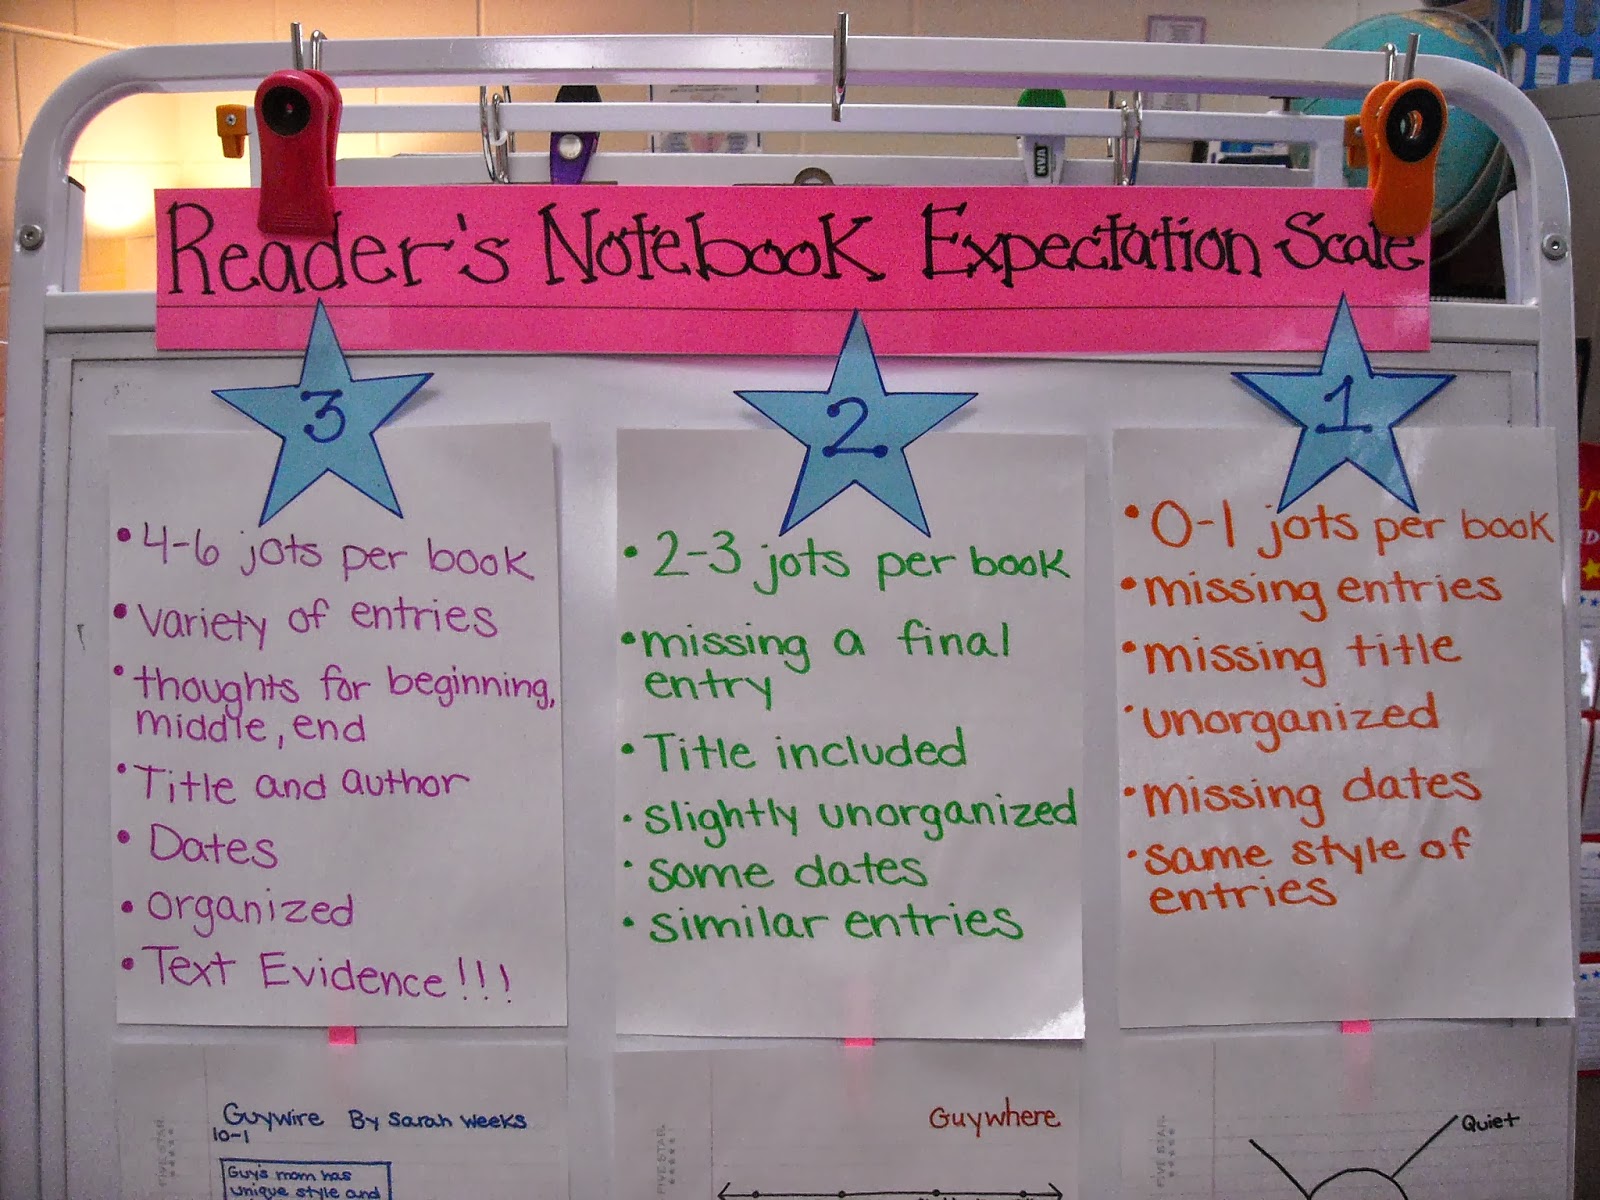 Reader's Notebook Expectation Scale
3
• 4-6 jots per book
• variety of entries
• thoughts for beginning,
middle, end
• Title and author
• Dates
• organized
• Text Evidence!!!
Guywire By Sarah Weeks
10-1
Guy's mom has
unique style and
FIVE STAR
2
• 2-3 jots per book
• missing a final
entry
• Title included
• slightly unorganized
• some dates
• similar entries
Guywhere
FIVE STAR
1
• 0-1 jots per book
• missing entries
• missing title
• unorganized
• missing dates
• same style of
entries
Quiet
FIVE STAR